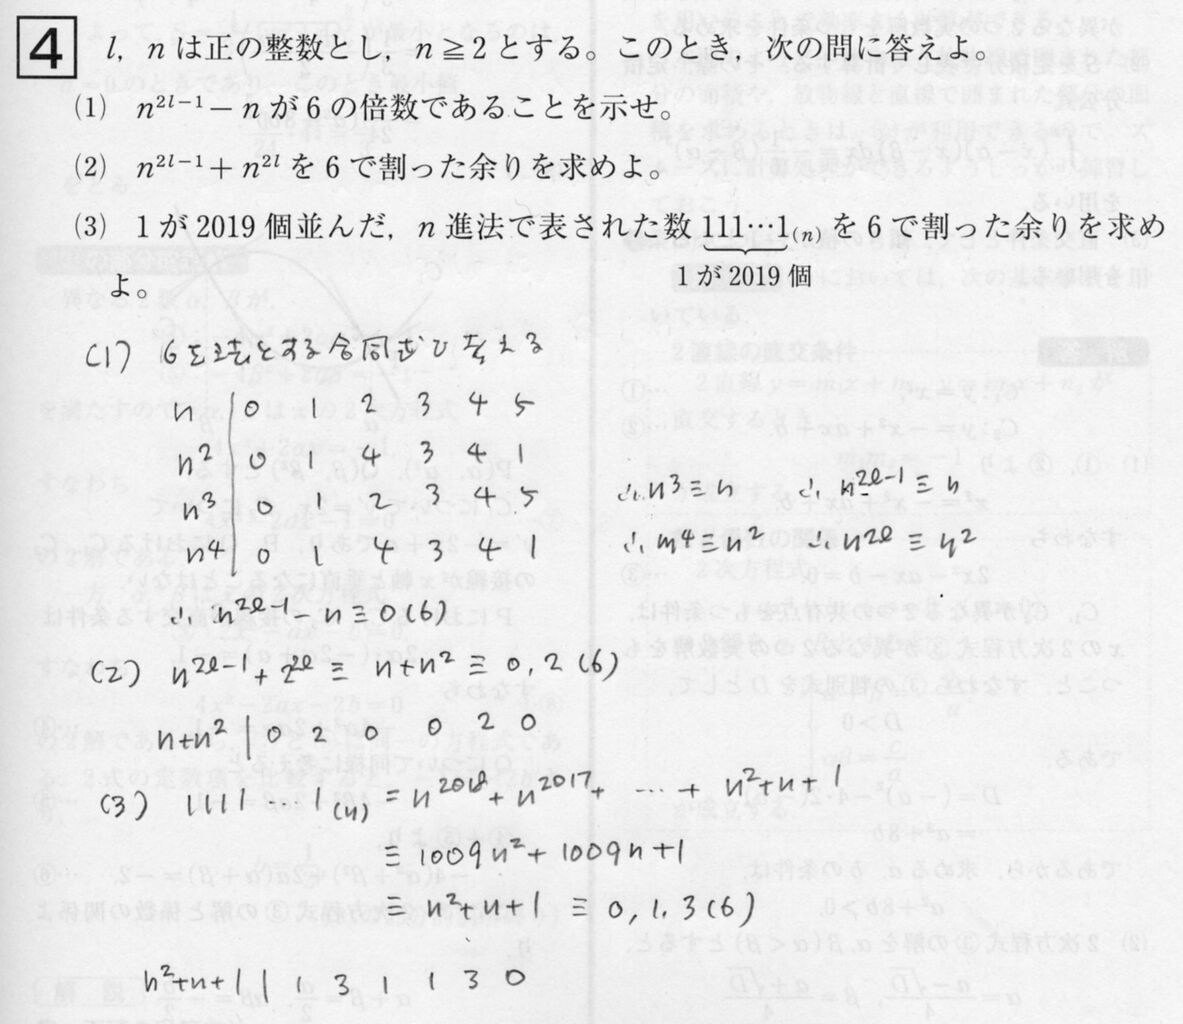 4 l, nは正の整数とし, n≧2とする。このとき, 次の問に答えよ。
(1) n²ˡ⁻¹−nが6の倍数であることを示せ。
(2) n²ˡ⁻¹+n²ˡを6で割った余りを求めよ。
(3) 1が2019個並んだ, n進法で表された数111⋯1₍ₙ₎を6で割った余りを求め
1が2019個
よ。
(1) 6を法とする合同式で考える
n | 0 1 2 3 4 5
n² | 0 1 4 3 4 1
n³ | 0 1 2 3 4 5 ∴n³≡n ∴n²ˡ⁻¹≡n
n⁴ | 0 1 4 3 4 1 ∴n⁴≡n² ∴n²ˡ≡n²
∴n²ˡ⁻¹−n≡0(6)
(2) n²ˡ⁻¹+2²ˡ≡n+n²≡0,2(6)
n+n² | 0 2 0 0 2 0
(3) 1111…1₍ₙ₎=n²⁰¹⁸+n²⁰¹⁷+⋯+n²+n+1
≡1009n²+1009n+1
≡n²+n+1≡0,1,3(6)
n²+n+1 | 1 3 1 1 3 0